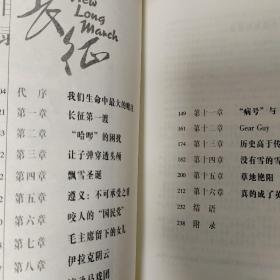 New
Long
March
长征
代 序 我们生命中最大的
第一章 长征第一渡
第二章 “哈啰”的困扰
第三章 让子弹穿透头颅
第四章 飘雪圣诞
第五章 遵义：不可承受之
第六章 咬人的“国民党”
第七章 毛主席留下的女儿
第八章 伊拉克阴云
149 第十一章 “病号”与
161 第十二章 Gear Guy
173 第十三章 历史高于传
182 第十四章 没有雪的雪
201 第十五章 草地艳阳
212 第十六章 真的成了英
232 结 语
238 附 录